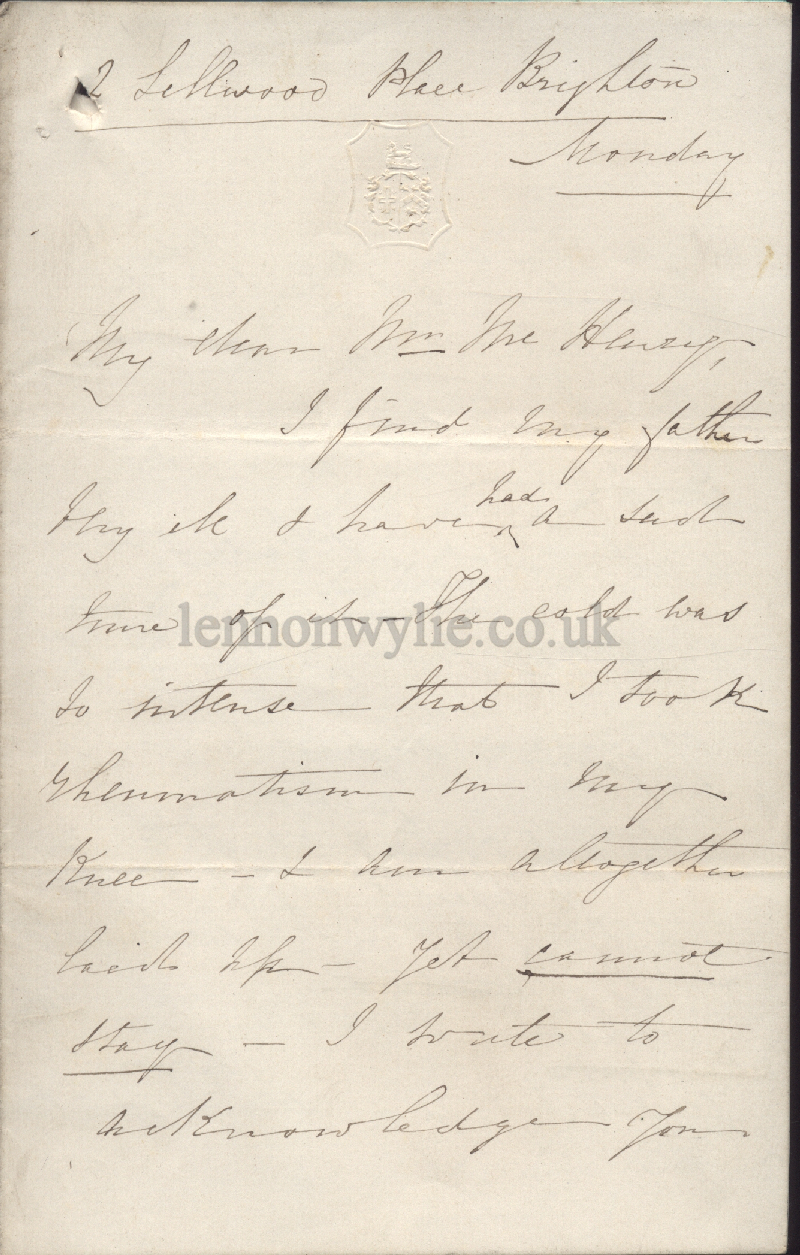 2 Sillwood Place Brighton
Monday
My dear Mrs Mc Henry,
I find my father
very ill & have had a sad
time of it - The cold was
so intense that I took
rheumatism in my
Knee - & am altogether
laid up - yet cannot
stay - I write to
acknowledge your
lennonwylie.co.uk